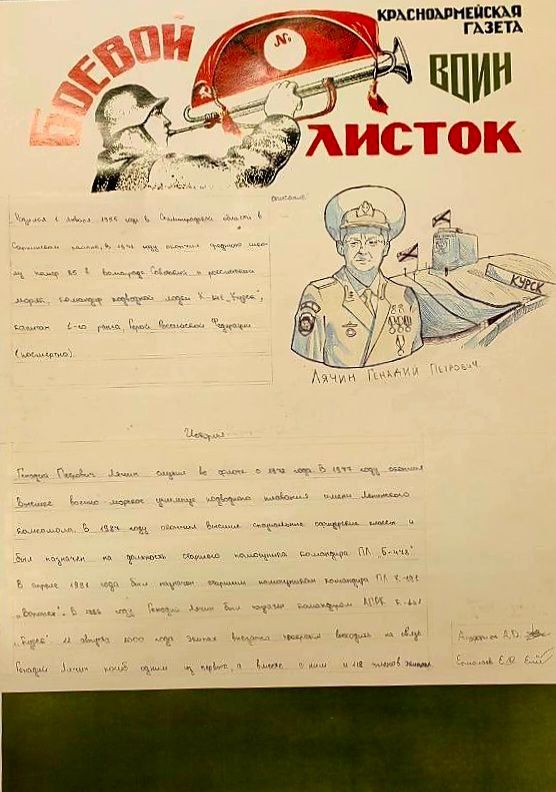 БОЕВОЙ
КРАСНОАРМЕЙСКАЯ
ГАЗЕТА
№
ВОИН
ЛИСТОК
описание
Родился 1 января 1955 году в Сталинградской области в
Сарпинском В 1972 году окончил среднюю шко-
лу номер 85 в Волгограде. Советский и российский
моряк, командир подводной лодки К-141 „Курск",
капитан 1-го ранга, Герой Российской Федерации
(посмертно).
КУРСК
ЛЯЧИН ГЕНАДИЙ ПЕТРОВИЧ
История
Генадий Петрович Лячин служил во флоте с 1972 года. В 1977 году окончил
Высшее военно морское училище подводного плавания имени Ленинского
комсомола. В 1987 году окончил высшие специальные офицерские классы и
был назначен на должность старшего помощника командира ПЛ „Б-478"
В апреле 1991 года был назначен старшим помощником командира ПЛ К-
„Воронеж". В году Генадий Лячин был назначен командиром АПРК К-141
„Курск" 12 августа 2000 года экипаж выходить на связь
Генадий Лячин погиб одним из первых, а вместе с ним и 118 членов экипажа.
А.D.
Ермолаев Е.